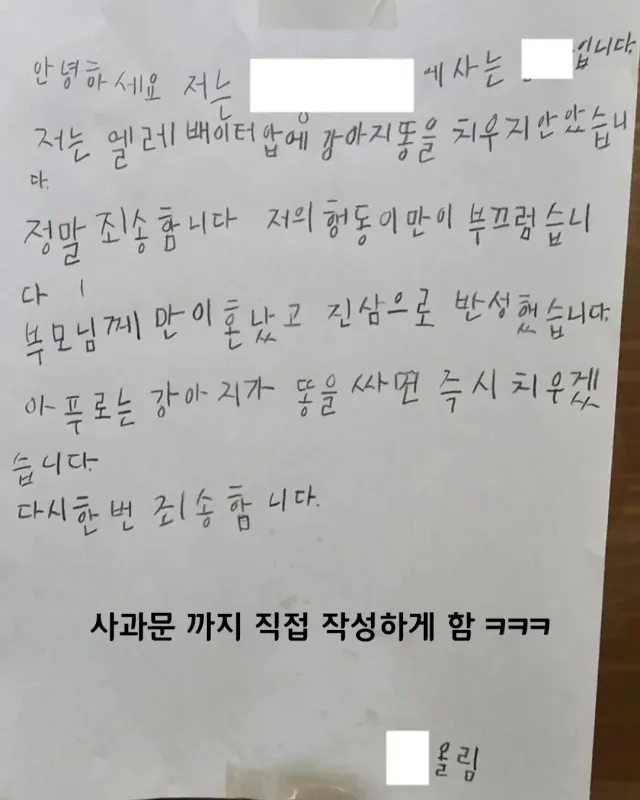 안녕하세요 저는 에 사는 입니다.
저는 엘레베이터 압에 강아지똥을 치우지안았습니
다.
정말 죄송함니다 저의 행동이만이 부끄럽습니
다
부모님께 만이혼났고 진삼으로 반성했습니다.
아푸로는 강아지가 똥을 싸면 즉시 치우겠
습니다.
다시한번 죄송함니다.
사과문 까지 직접 작성하게 함 ㅋㅋㅋ
올림